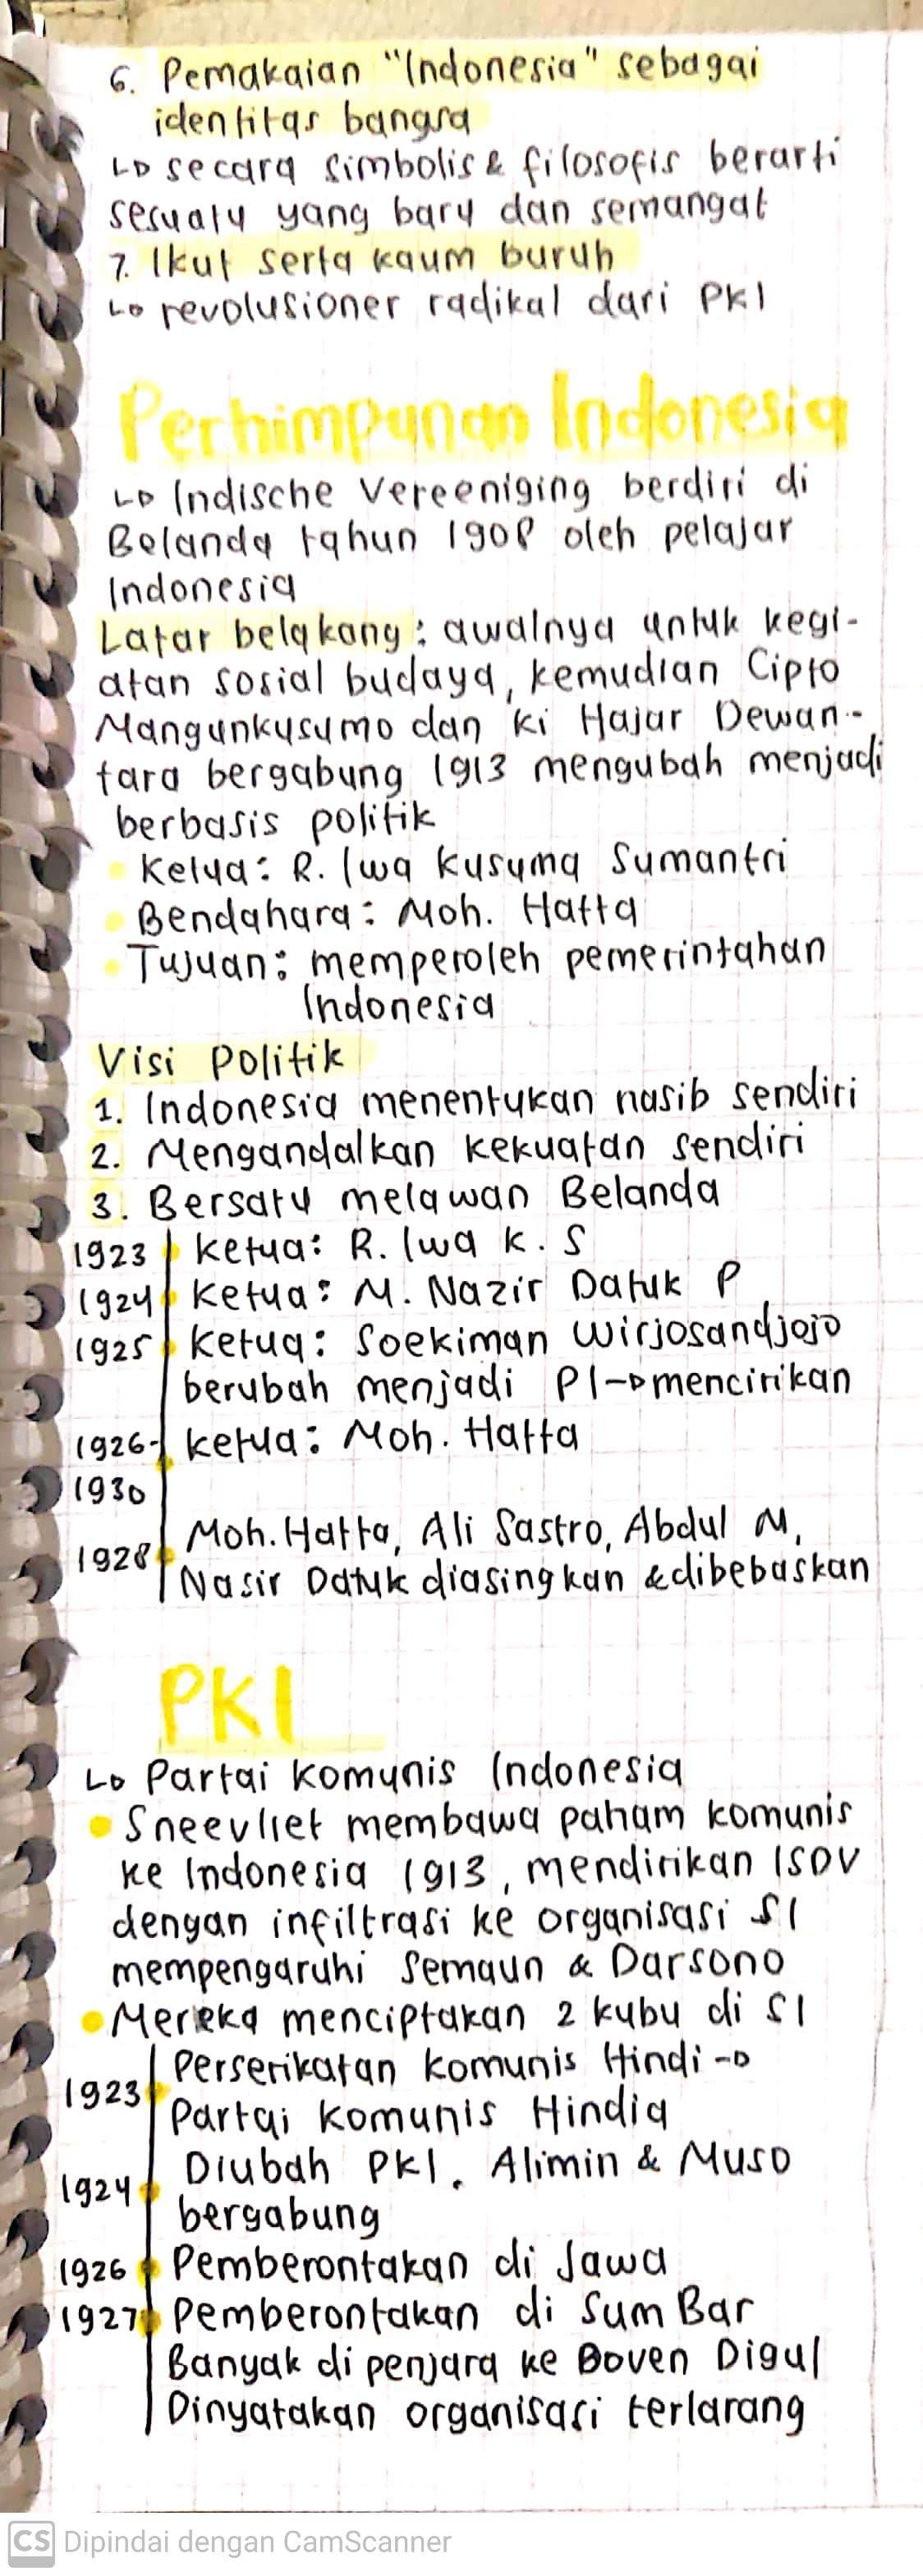 6. Pemakaian "Indonesia" sebagai
identitas bangsa
↳ secara simbolis & filosofis berarti
sesuatu yang baru dan semangat
7. Ikut serta kaum buruh
↳ revolusioner radikal dari PKI
Perhimpunan Indonesia
↳ Indische Vereeniging berdiri di
Belanda tahun 1908 oleh pelajar
Indonesia
Latar belakang: awalnya untuk kegi-
atan sosial budaya, kemudian Cipto
Mangunkusumo dan Ki Hajar Dewan-
tara bergabung 1913 mengubah menjadi
berbasis politik
• Ketua: R. Iwa Kusuma Sumantri
• Bendahara: Moh. Hatta
• Tujuan: memperoleh pemerintahan
Indonesia
Visi Politik
1. Indonesia menentukan nasib sendiri
2. Mengandalkan kekuatan sendiri
3. Bersatu melawan Belanda
1923 Ketua: R. Iwa K. S
1924 Ketua: M. Nazir Datuk P
1925 Ketua: Soekiman Wirjosandjojo
berubah menjadi PI → mencirikan
1926- Ketua: Moh. Hatta
1930
Moh. Hatta, Ali Sastro, Abdul M,
1928 Nasir Datuk diasingkan & dibebaskan
PKI
↳ Partai Komunis Indonesia
• Sneevliet membawa paham komunis
ke Indonesia 1913, mendirikan ISDV
dengan infiltrasi ke organisasi SI
mempengaruhi Semaun & Darsono
• Mereka menciptakan 2 kubu di SI
Perserikatan Komunis Hindi →
1923 Partai Komunis Hindia
1924 Diubah PKI. Alimin & Muso
bergabung
1926 Pemberontakan di Jawa
1927 Pemberontakan di SumBar
Banyak di penjara ke Boven Digul
Dinyatakan organisasi terlarang
CS Dipindai dengan CamScanner